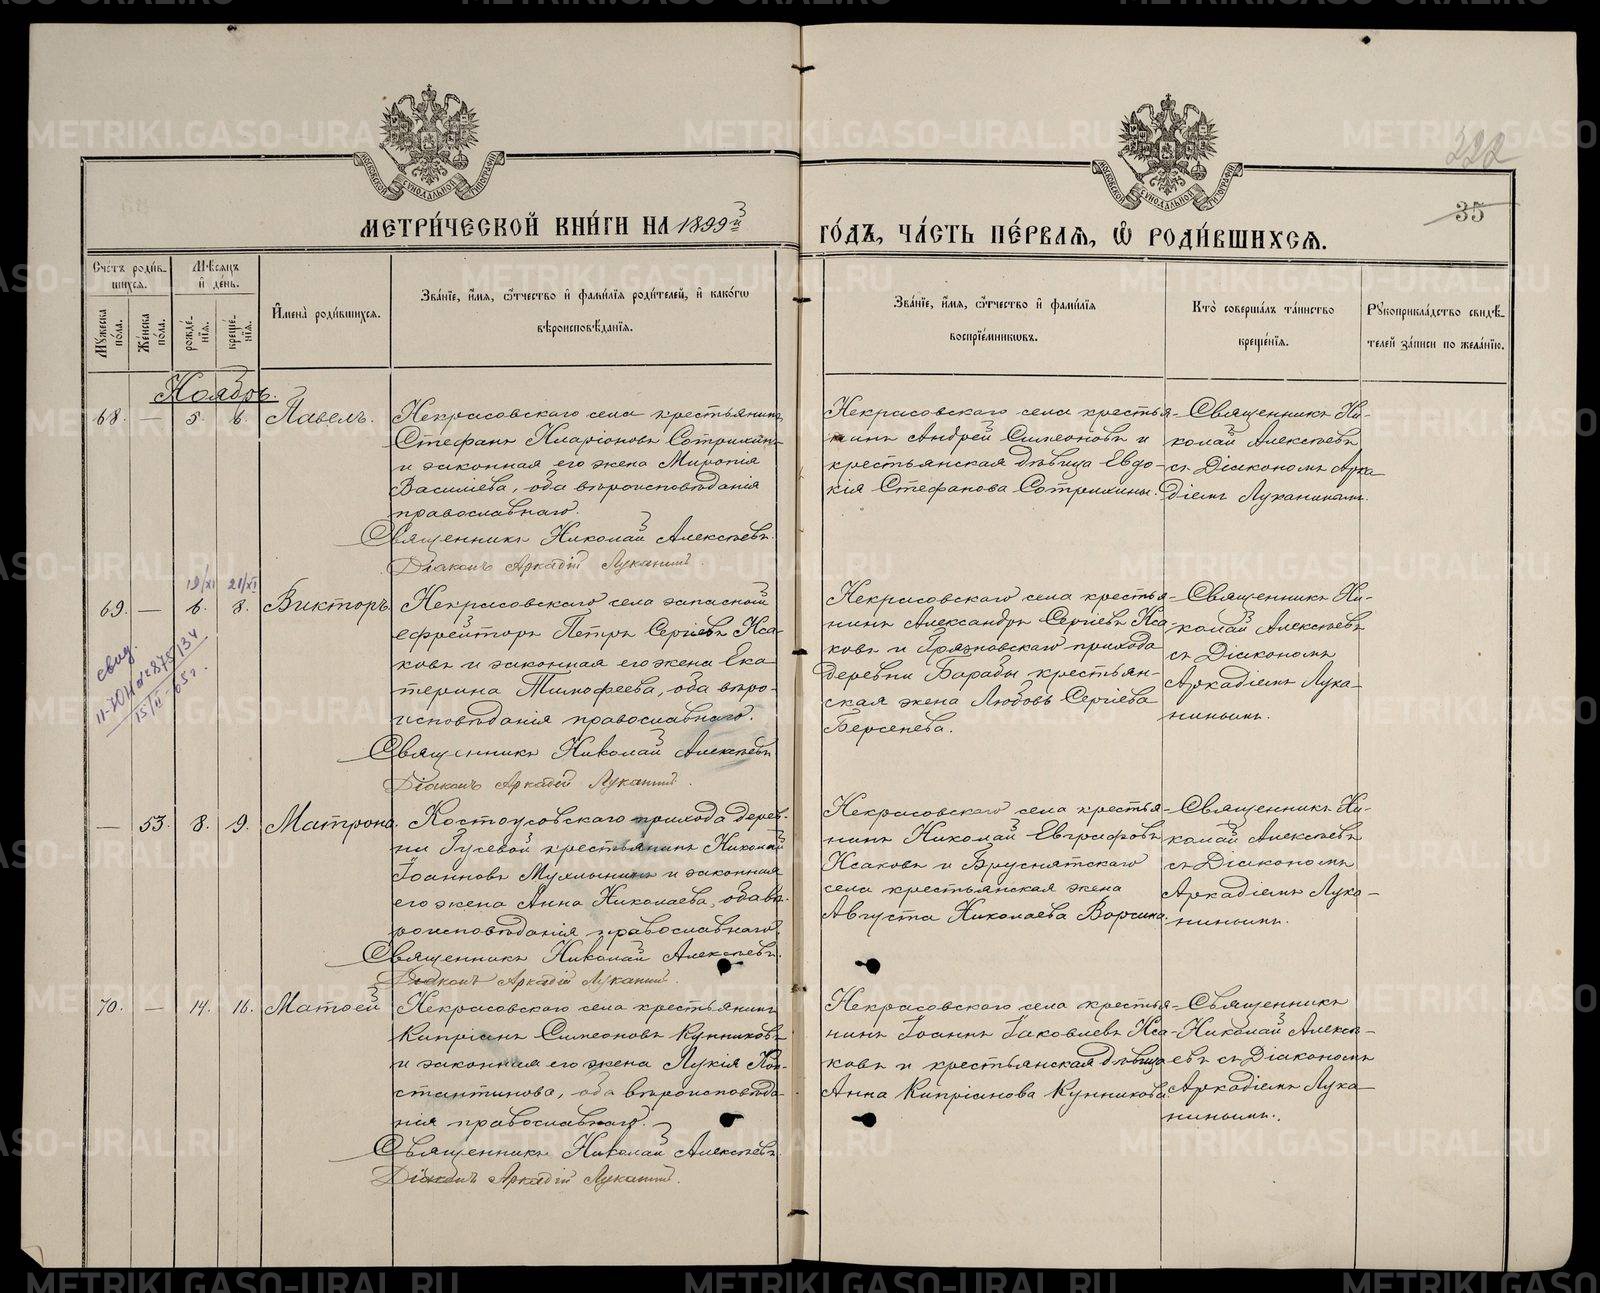 222
35
МЕТРИ́ЧЕСКОЙ КНИ́ГИ НА 1899й
ГО́ДЪ, ЧА́СТЬ ПЕ́РВАѦ, Ѽ РОДИ́ВШИХСѦ.
Сче́тъ роди́в-
шихся.
Мѣ́сяцъ
и де́нь.
Му́жеска
по́ла.
Же́нска
по́ла.
рожде́-
нїя.
креще́-
нїя.
Имена̀ роди́вшихся.
Зва́нїе, и́мя, ѻ҆́тчество и фами́лїя роди́телей, и како́гѡ
вѣроисповѣ́данїя.
Зва́нїе, и́мя, ѻ҆́тчество и фами́лїя
воспрїе́мниковъ.
Кто̀ соверша́лъ та́инство
креще́нїя.
Рукоприкла́дство свидѣ́-
телей за́писи по жела́нїю.
Ноябрь.
68. — 5. 6. Павелъ.
Некрасовскаго села крестьянинъ
Стефанъ Иларіоновъ Сотрихинъ
и законная его жена Миропія
Василіева, оба вѣроисповѣданія
православнаго.
Священникъ Николай Алексѣевъ.
Діаконъ Аркадій Луканинъ.
Некрасовскаго села крестья-
нинъ Андрей Симеоновъ и
крестьянская дѣвица Евдо-
кія Стефанова Сотрихины.
Священникъ Ни-
колай Алексѣевъ
съ Діакономъ Арка-
діемъ Луканинымъ.
19/XI 21/XI
69. — 6. 8. Викторъ
свид.
II-ЮН № 875134
15/II-65г.
Некрасовскаго села запасной
ефрейторъ Петръ Сергіевъ Иса-
ковъ и законная его жена Ека
терина Тимофеева, оба вѣро-
исповѣданія православнаго.
Священникъ Николай Алексѣевъ
Діаконъ Аркадій Луканинъ.
Некрасовскаго села крестья-
нинъ Александръ Сергіевъ Иса-
ковъ и Грязновскаго прихода
деревни Барабы крестьян-
ская жена Любовь Сергіева
Берсенева.
Священникъ Ни-
колай Алексѣевъ
съ Діакономъ
Аркадіемъ Лука-
нинымъ.
— 53. 8. 9. Матрона.
Костоусовскаго прихода дерев-
ни Гусевой крестьянинъ Николай
Іоанновъ Мухлынинъ и законная
его жена Анна Николаева, оба вѣ-
роисповѣданія православнаго.
Священникъ Николай Алексѣевъ.
Діаконъ Аркадій Луканинъ.
Некрасовскаго села крестья-
нинъ Николай Евграфовъ
Исаковъ и Бруснятскаго
села крестьянская жена
Августа Николаева Ворсина.
Священникъ Ни-
колай Алексѣевъ
съ Діакономъ
Аркадіемъ Лука-
нинымъ.
70. — 14. 16. Матѳей
Некрасовскаго села крестьянинъ
Кипріанъ Симеоновъ Кунниковъ
и законная его жена Лукія Кон-
стантинова, оба вѣроисповѣда-
нія православнаго.
Священникъ Николай Алексѣевъ.
Діаконъ Аркадій Луканинъ.
Некрасовскаго села крестья-
нинъ Іоаннъ Іаковлевъ Иса-
ковъ и крестьянская дѣвица
Анна Кипріанова Кунникова
Священникъ
Николай Алексѣ-
евъ съ Діакономъ
Аркадіемъ Лука-
нинымъ.